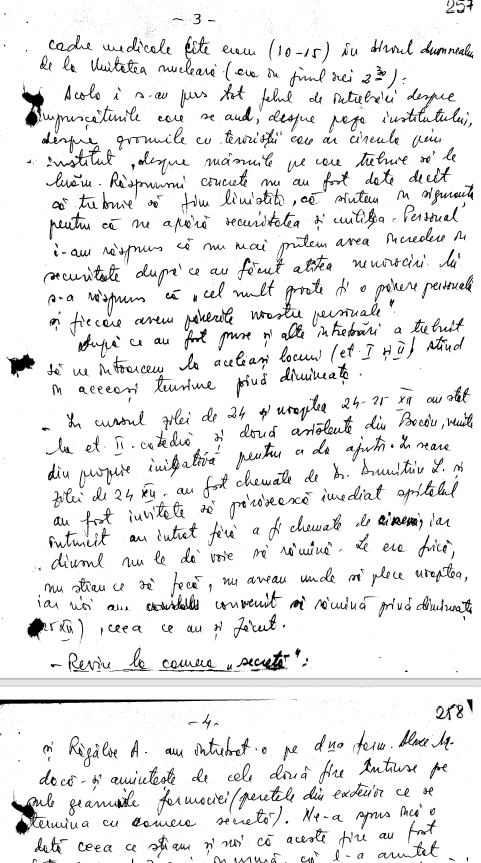 - 3 -
257
cadre medicale câte eram (10-15) în biroul dumnealui
de la Unitatea nucleară (era în jurul orei 2 30):
Acolo i s-au pus tot felul de întrebări despre
împușcăturile care se aud, despre paza institutului,
despre zvonurile cu teroriștii care ar circula prin
institut, despre măsurile pe care trebuie să le
luăm. Răspunsuri concrete nu au fost date decît
că trebuie să fim liniștiți, că sîntem în siguranță
pentru că ne apără securitatea și miliția. Personal
i-am răspuns că nu mai putem avea încredere în
securitate după ce au făcut atîtea nenorociri. Mi
s-a răspuns că „cel mult poate fi o părere personală
și fiecare avem părerile noastre personale".
După ce au fost puse și alte întrebări a trebuit
să ne întoarcem la aceleași locuri (et I și II) stînd
în aceeași tensiune pînă dimineață.
- În cursul zilei de 24 și noaptea 24-25 XII au stat
la et. II. catedră și două asistente din Bacău, venite
din proprie inițiativă pentru a da ajutor. În seara
zilei de 24 XII au fost chemate de Dr. Dumitriu L. și
au fost invitate să părăsească imediat spitalul
întrucît au intrat fără a fi chemate de cineva, iar
dînsul nu le dă voie să rămînă. Le era frică,
nu știau ce să facă, nu aveau unde să plece noaptea,
iar noi am convenit să rămînă pînă dimineața
25 XII), ceea ce au și făcut.
- Revin la camera „secretă":
- 4 -
258
și Răgăloe A. am întrebat-o pe dna farm.
dacă-și amintește de cele două fire întinse pe
sub geamurile farmaciei (peretele din exterior ce se
termina cu camera secretă). Ne-a spus încă o
dată ceea ce știam și noi că aceste fire au fost